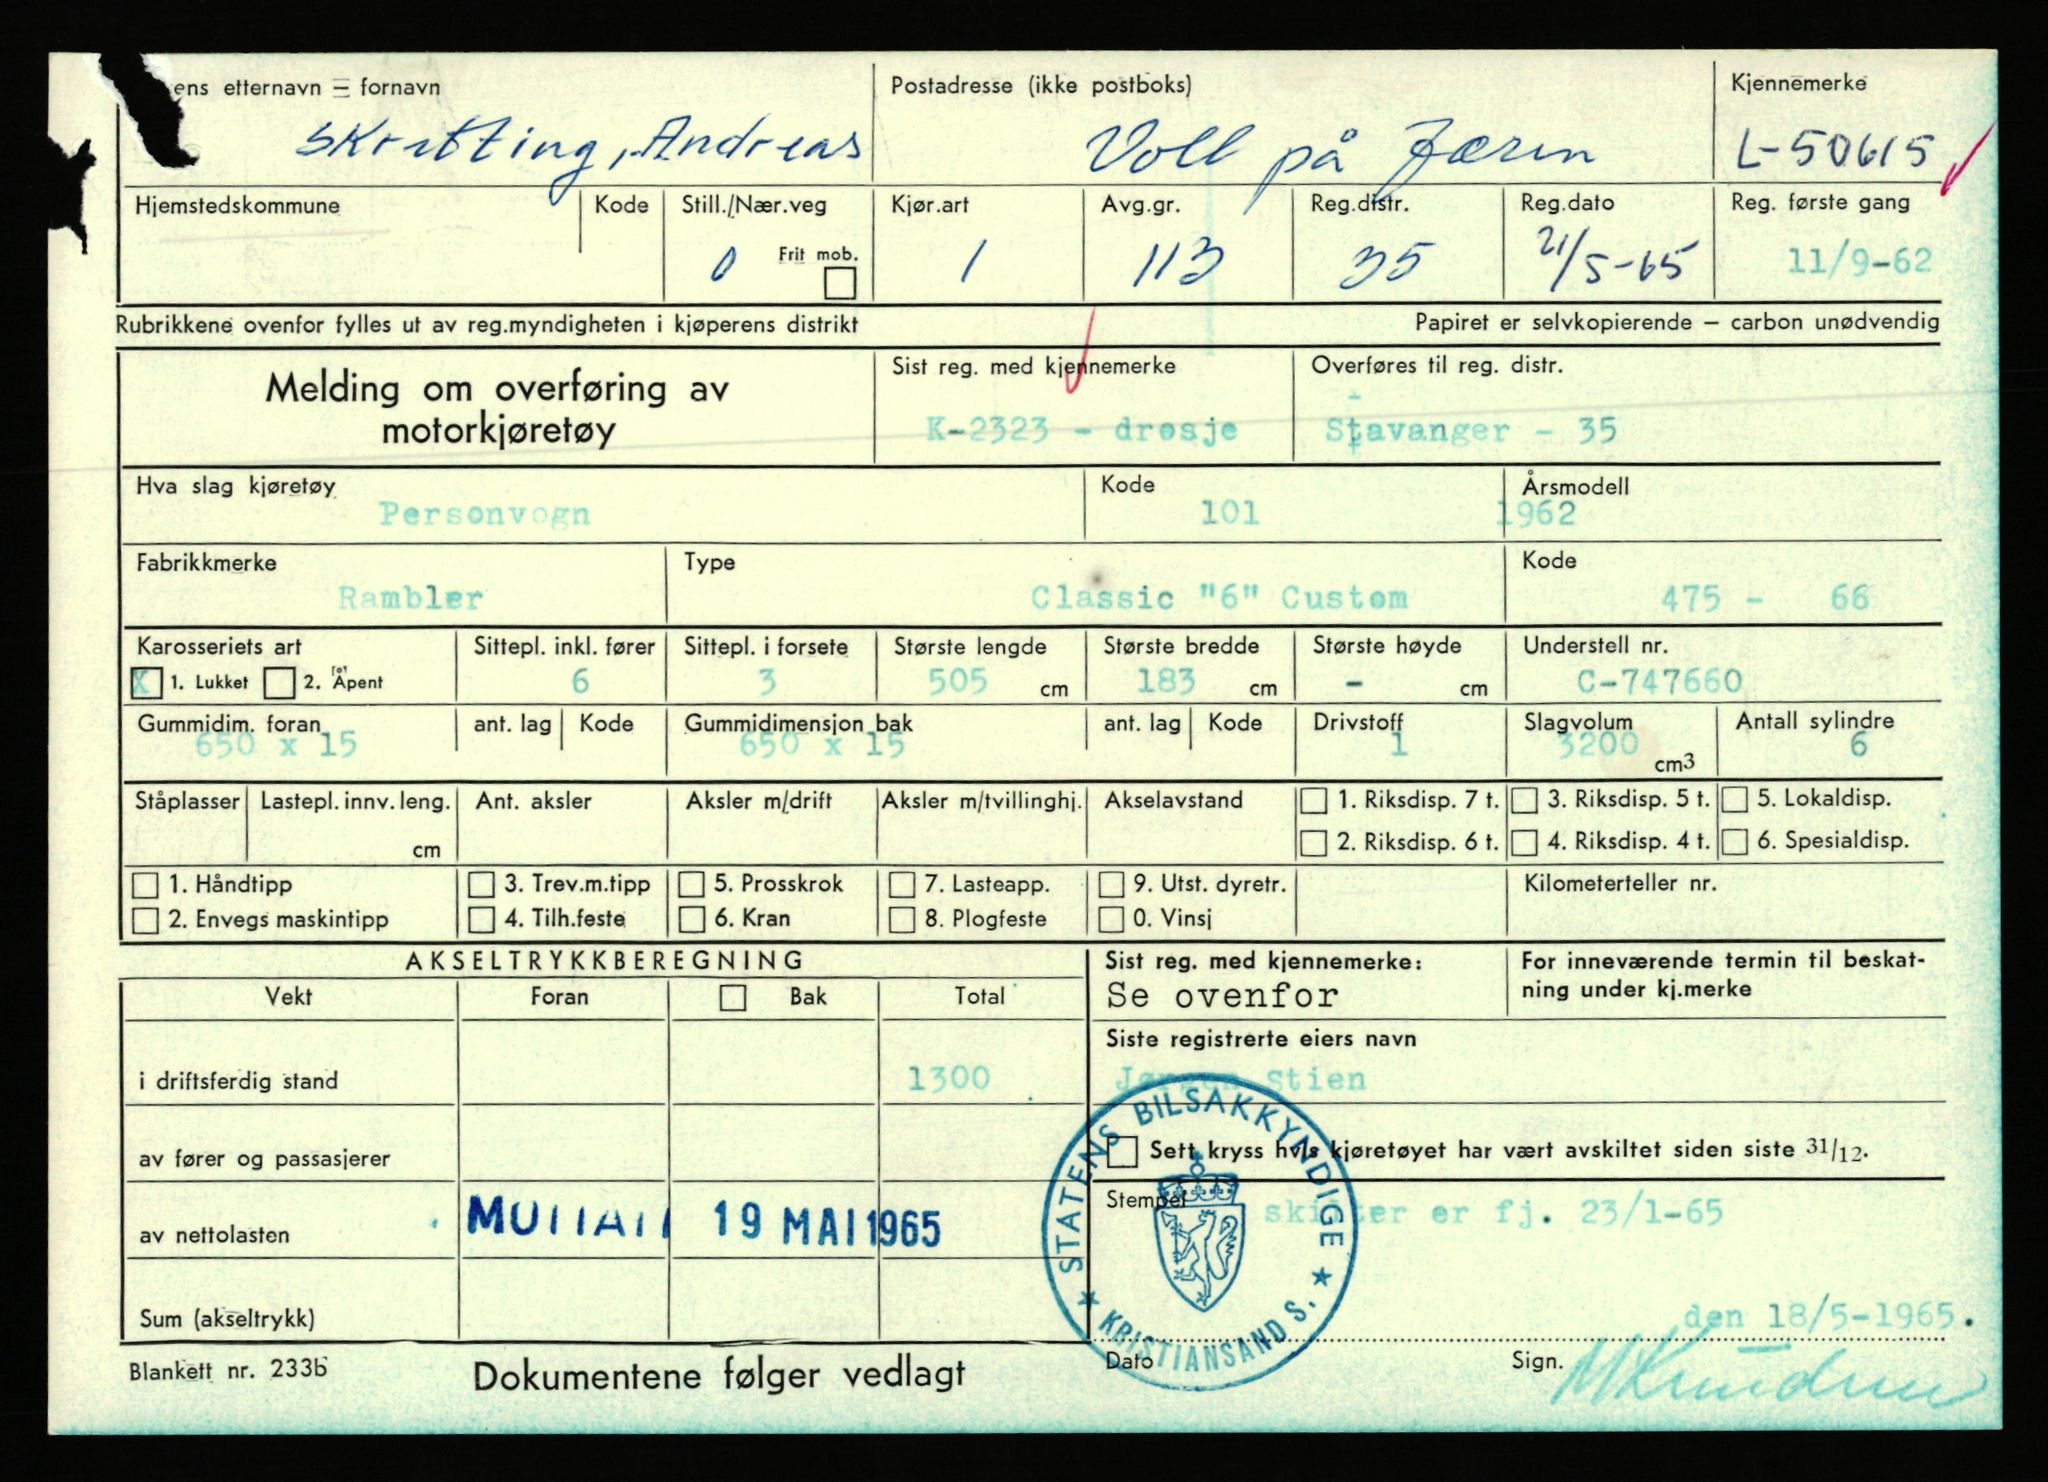 ens etternavn – fornavn Postadresse (ikke postboks) Kjennemerke
Skretting, Andreas Voll på Jæren L-50615
Hjemstedskommune Kode Still./Nær.veg Kjør.art Avg.gr. Reg.distr. Reg.dato Reg. første gang
0 Frit mob. 1 113 35 21/5-65 11/9-62
Rubrikkene ovenfor fylles ut av reg.myndigheten i kjøperens distrikt Papiret er selvkopierende – carbon unødvendig
Melding om overføring av motorkjøretøy
Sist reg. med kjennemerke Overføres til reg. distr.
K-2323 - drosje Stavanger - 35
Hva slag kjøretøy Kode Årsmodell
Personvogn 101 1962
Fabrikkmerke Type Kode
Rambler Classic "6" Custom 475 - 66
Karosseriets art Sittepl. inkl. fører Sittepl. i forsete Største lengde Største bredde Største høyde Understell nr.
X 1. Lukket 2. Åpent 6 3 505 cm 183 cm - cm C-747660
Gummidim. foran ant. lag Kode Gummidimensjon bak ant. lag Kode Drivstoff Slagvolum Antall sylindre
650 x 15 650 x 15 1 3200 cm3 6
Ståplasser Lastepl. innv. leng. Ant. aksler Aksler m/drift Aksler m/tvillinghj. Akselavstand 1. Riksdisp. 7 t. 3. Riksdisp. 5 t. 5. Lokaldisp.
cm 2. Riksdisp. 6 t. 4. Riksdisp. 4 t. 6. Spesialdisp.
1. Håndtipp 3. Trev.m.tipp 5. Prosskrok 7. Lasteapp. 9. Utst. dyretr. Kilometerteller nr.
2. Envegs maskintipp 4. Tilh.feste 6. Kran 8. Plogfeste 0. Vinsj
AKSELTRYKKBEREGNING
Vekt Foran Bak Total
i driftsferdig stand 1300
av fører og passasjerer
av nettolasten
MOTTATT 19 MAI 1965
Sum (akseltrykk)
Sist reg. med kjennemerke: For inneværende termin til beskat-
Se ovenfor ning under kj.merke
Siste registrerte eiers navn
Jørgen Stien
Sett kryss hvis kjøretøyet har vært avskiltet siden siste 31/12.
Stempel skilter er fj. 23/1-65
STATENS BILSAKKYNDIGE ★ KRISTIANSAND S. ★
den 18/5-1965.
Dato Sign.
Blankett nr. 233b Dokumentene følger vedlagt